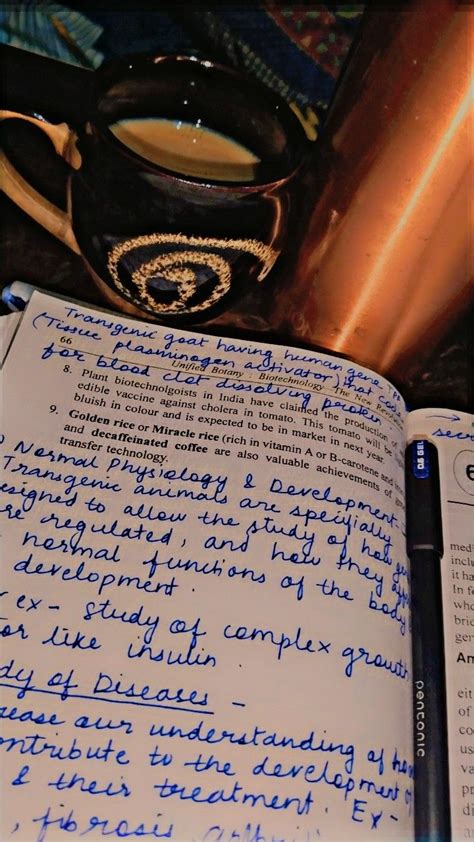 Transgenic goat having human gene TPA
(Tissue plasminogen activator) that codes
for blood clot dissolving protein
66
Unified Botany : Biotechnology : The New
8. Plant biotechnolgoists in India have claimed the production of
edible vaccine against cholera in tomato. This tomato will be
bluish in colour and is expected to be in market in next year.
9. Golden rice or Miracle rice (rich in vitamin A or B-carotene and
and decaffeinated coffee are also valuable achievements of
transfer technology.
Normal Physiology & Development -
Transgenic animals are specifially
esigned to allow the study of how
re regulated, and how they
normal functions of the body
development.
ex - study of complex growth
tor like insulin.
dy of Diseases -
rease our understanding of how
ontribute to the development of
& their treatment. Ex -
, fibrosis
0.6 GEL
pentonic
6
medi
inclu
it ha
In f
who
bri
gen
An
eit
of
co
us
va
pr
di